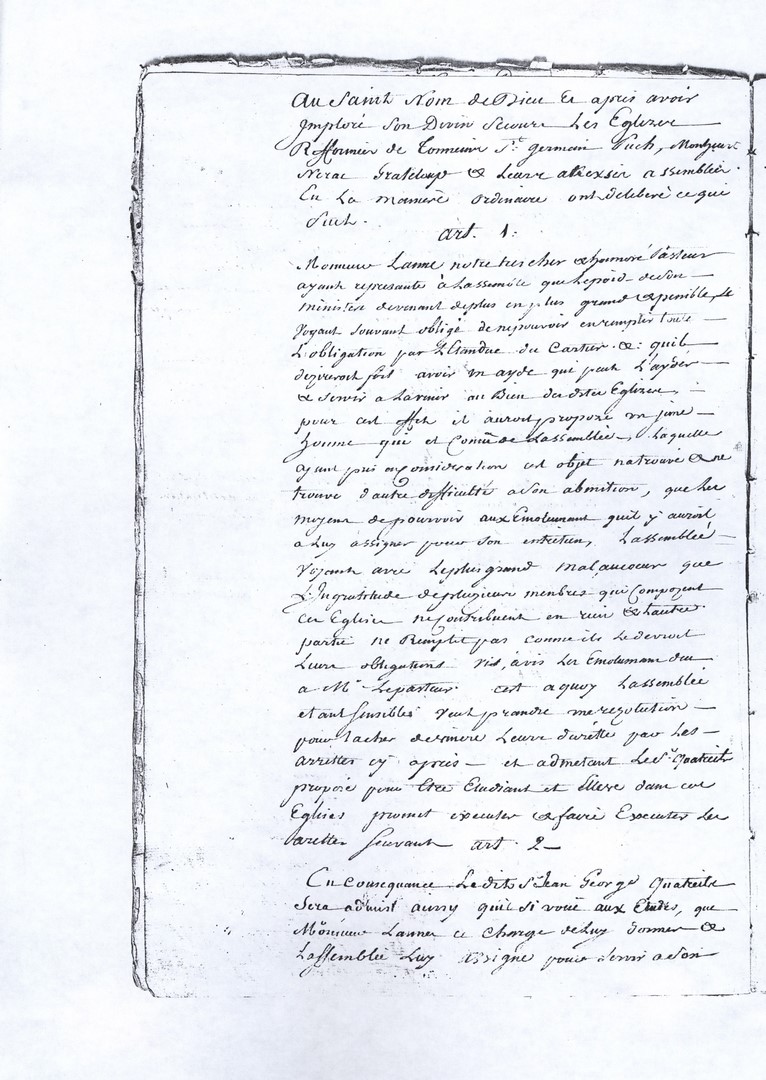 Au Saint Nom de Dieu Et apres avoir
Imploré Son Divin Secours Les Eglizes
Refformées de Tonneins St. germain Puch, Montheurt
Nerac Grateloup & Leurs anexses assemblées
En La maniere ordinaire ont deliberé ce qui
Suit.
art. 1:
Monsieur Lanne notre tres cher & honnoré Pasteur
ayant representé à Lassemblée que Le poid de Son
ministere devenant de plus en plus grand & penible, Se
voyant souvant obligé de ne pouvoir en remplir toute
L'obligation par L'Etandue du Cartier &: quil
dezireroit fort avoir un ayde qui peut L'ayder
& Servir a Lavenir au Bien des dites Eglizes,
pour cet effet il auroit propozé un jeune
homme qui et Connu de Lassemblée, Laquelle
ayant pris en consideration cet objet na trouvé & ne
trouve d'autre difficulté a Son admition, que Les
moyens de pourvoir aux Emolumant quil y auroit
a Luy assigner pour Son entretien, Lassemblée
Voyant avec Le plus grand mal au coeur que
L'Ingratitude de plusieurs menbres qui Composent
Ces Eglises ne contribuent en rien & L'autre
partie ne Remplit pas comme ils Le devroit
Leurs obligations vis, a vis Les Emolumans deu
a Mr. Le pasteur cest a quoy Lassemblée
etant Sensibles veut prandre une rezolution
pour tacher de vincre Leurs dureté par Les
arrettes cy apres et admetant Le Sr. Quatreils
propozé pour Etre Etudiant et Elleve dans ces
Eglises promet executer & faire Executer Les
arettes Suivant art. 2
En Consequance Le dit Sr. Jean George Quatreils
Sera admist aussy quil si voue aux Etudes, que
Monsieur Lanne ce Charge de Luy donner &
Lassemblée Luy assigne pour Servir a Son